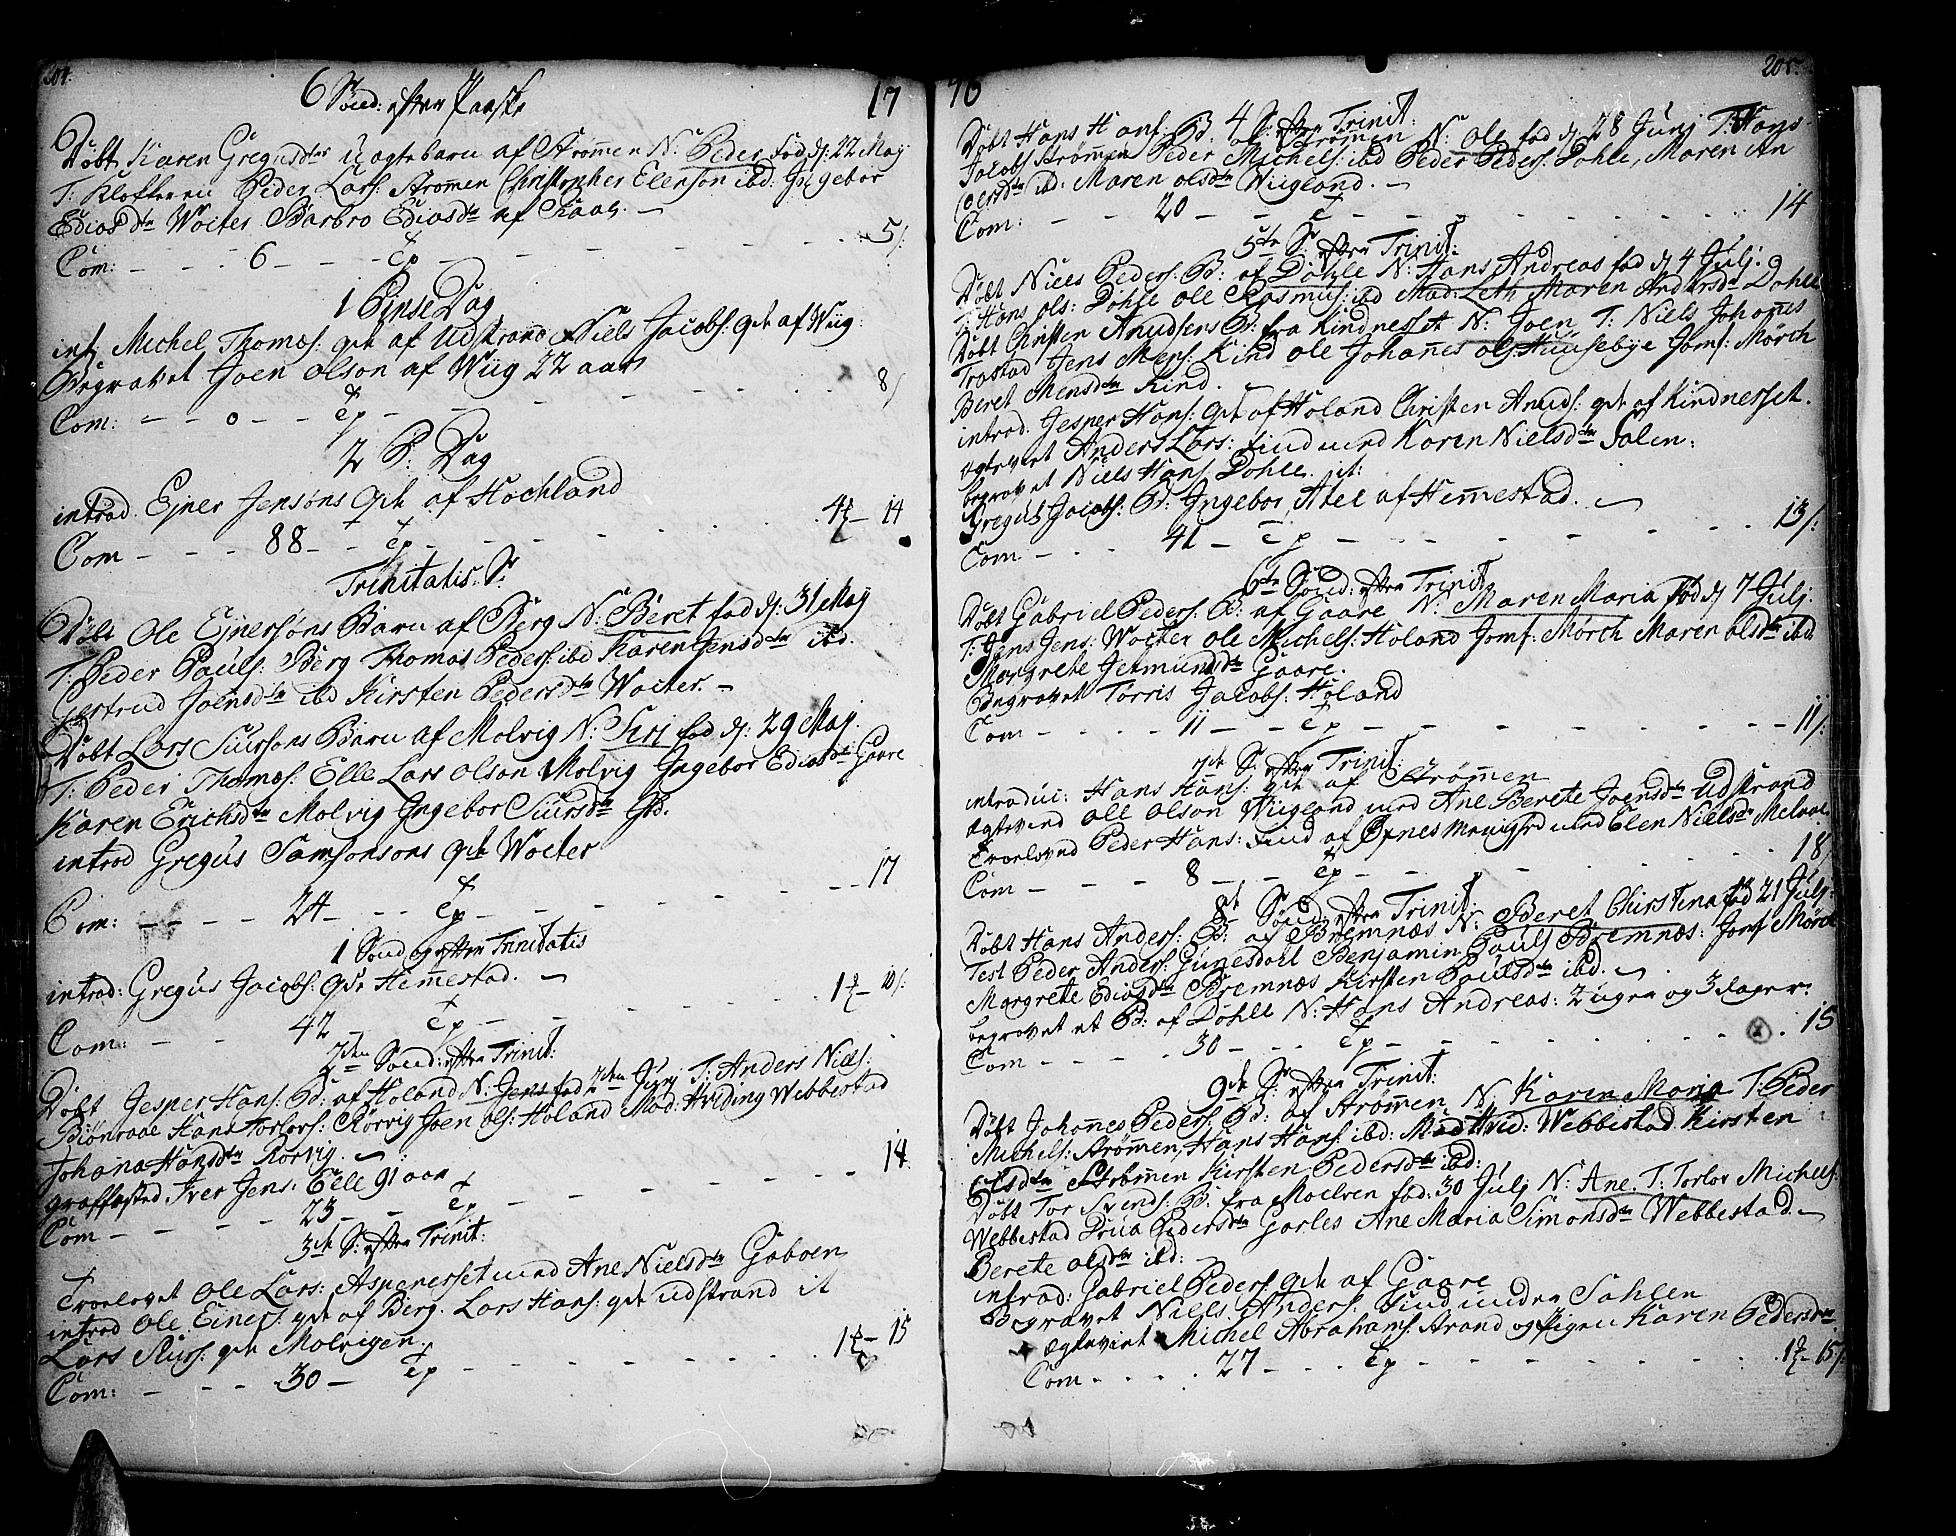 204.
6 Sönd: efter Paaske 17
Döbt Karen Gregusdtr Uægte barn af Strømen N: Peder fød d: 22 May
T: Klokkeren Peder Lars: Strømen Christopher Elenson ibd: Ingebor
Ediasdtr Wolter Barbro Ediasdtr af
Com: - - - 6 - - - - Ep - - - 5/:
1 Pinse Dag
int: Michel Thomæs: qde af Udstrand Niels Jacobs: qde af Wiig:
Begravet Joen Olson af Wiig 22 aar
Com: - - 0 - - Ep - - - 8/
2 P: Dag
introd. Ejner Jensöns Qde af Hochland
Com - - - 88 - - Ep - - - 14
Trinitatis S:
Döbt Ole Ejnersöns Barn af Berg N: Beret fød d: 31 May
T: Peder Pauls: Berg Thomas Peders: ibd Karen Jensdtr ibd.
Giertrud Joensdtr ibd Kirsten Pedersdtr Wolter. -
Döbt Lars Siursons Barn af Molvig N: Siri fød d: 29 May.
T: Peder Thomæs: Elle Lars Olson Molvig Ingebor Ediasdtr Gaare
Karen Erichsdtr Molvig Ingebor Siursdtr ibd.
introd Gregus Samsonsons qde Wolter
17
Com: - - - - 24 - - - Ep - - -
1 Sönd og efter Trinitatis
introd: Gregus Jacobs: qde Hemestad. -
10/:
Com: - - 42 Ep - - -
2den Sönd: efter Trinit:
Döbt Jesper Hans: B: af Holand N: Jens fød 2den Junj T: Anders Niels:
Biönraae Hans Torlors: Rörvig Joen Ols: Holand Mad: Hviding Webbestad
Johana Hansdtr Rörvig. -
14
graffæsted Iver Jens: Eelle 91 aar
Com - - - - 23 - - Ep - - -
3de S: efter Trinit:
Troelovet Ole Lars: Aspenesset med Ane Nielsdtr Gaboen
introd Ole Einers: qde af Berg. Lars Hans: qde udstrand it
Lars Siurs: qde Molvigen.
15
Com: - - - - 30 - Ep - - -
70 205.
4 S: efter Trinit:
Döbt Hans Hans: B: af Strömen N: Ole fød d: 28 Junj T: Hans
Jacobs Strømen Peder Michels: ibd Peder Peders: Dohle, Maren An
dersdtr ibd: Maren Olsdtr Wiigland. -
Com: - - - 20 - - E - - - 14
5te S: efter Trinit:
Döbt Niels Peders: B: af Dohle N: Hans Andreas fød d: 4 Julj:
T: Hans Ols: Dohle Ole Rasmus: ibd Mad: Leth Maren Andersdtr Dohle
Döbt Christen Anudsens B: fra Kindnesset N: Joen T: Niels Johanes
Trastad Jens Mens: Kind Ole Johanes Ols: Huusebye Jomf: Mörch
Beret Mensdtr Kind.
introd. Jesper Hans: Qde af Holand Christen Anuds: qde af Kindnesset.
ægteviet Anders Lars: Find med Karen Nielsdtr Salen:
begravet Niels Hans Dohle. it:
Gregus Jacobs: B: Ingebor Atee af Hemestad. -
Com - - - 41 - Ep - - - 13/:
6te Sönd: efter Trinit:
Döbt Gabriel Peders: B: af Gaare N: Maren Maria Fød d: 7 Julj:
T: Jens Jens: Wolter Ole Michels: Holand Jomf: Mörch Maren Olsdtr ibd
Margrete Jetmundsdtr Gaare.
Begravet Torris Jacobs: Holand
Com - - - - 11 - - - Ep - - - 11/:
7de S: efter Trinit:
introdu: Hans Hans: qde af Strömen
Ægteviid Ole Olson Wiigland med Ane Berete Joensdtr Udstrand
Troelovd Peder Hans: Find af Öxnes Menighd med Elen Nielsdtr Melaae
Com - - - 8 - - - Ep - - - 18/
8de Sönd: efter Trinit:
Döbt Hans Anders: B: af Bremnæs N: Beret Chirstina fød 21 Julj:
Test Peder Anders: Gunesdahl Benjamin Pauls Bremnæs: Jomf Mörch
Margrete Ediasdtr Bremnæs Kirsten Paulsdtr ibd. -
begravet et B: af Dohle N: Hans Andreas: 2 uger og 3 dager:
Com - - - - 30 - - - Ep - - - 15
9de S: efter Trinit:
Döbt Johanes Peders: B: af Strømen N: Karen Maria T: Peder
Michels: Strømen, Hans Hans: ibd: Mad Hvid: Webbestad Kirsten
Elsdtr Strømen Kirsten Pedersdtr ibd:
Döbt Tor Svends: B: fra Moelven fød: 30 Julj N: Ane. T: Torlov Michels:
Webbestad Drua Pedersdtr Garles Ane Maria Simonsdtr Webbestad. -
Berete Olsdtr ibd:
introd: Gabriel Peders: qde af Gaare
Begravet Niels Anders: Find under Sahlen
Ægteviet Michel Abrahams: Strand og Pigen Karen Pedersdtr
Com - - - - 27 - - - Ep - - - 15/: